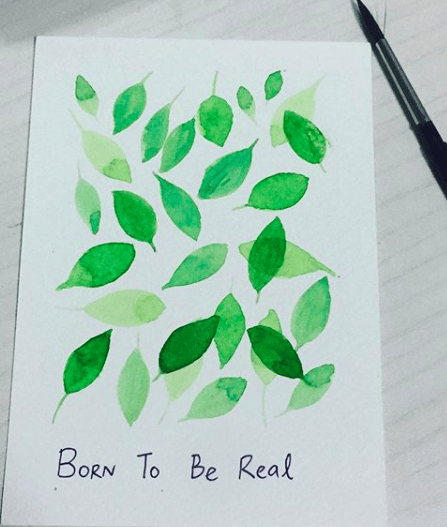 BORN To Be Real